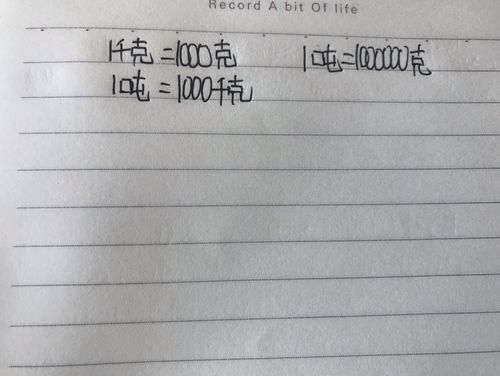 Record A bit Of life
1千克=1000克 1吨=1000000克
1吨=1000千克